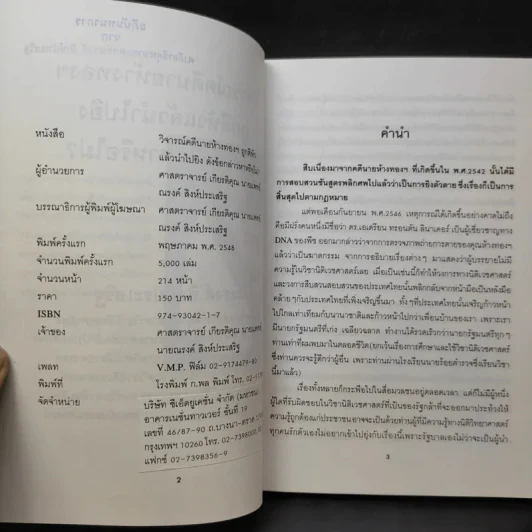 หนังสือ วิจารณ์คดีนายห้างทองฯ ถูกตีหัว
แล้วนำไปยิง ดังข้อกล่าวหาหรือไม่?
ผู้อำนวยการ ศาสตราจารย์ เกียรติคุณ นายแพทย์
ณรงค์ สิงห์ประเสริฐ
บรรณาธิการผู้พิมพ์ผู้โฆษณา ศาสตราจารย์ เกียรติคุณ นายแพทย์
ณรงค์ สิงห์ประเสริฐ
พิมพ์ครั้งแรก พฤษภาคม พ.ศ. 2546
จำนวนพิมพ์ครั้งแรก 5,000 เล่ม
จำนวนหน้า 214 หน้า
ราคา 150 บาท
ISBN 974-93042-1-7
เจ้าของ ศาสตราจารย์ เกียรติคุณ นายแพทย์
นายณรงค์ สิงห์ประเสริฐ
เพลท V.M.P. ฟิล์ม 02-9174479-80
พิมพ์ที่ โรงพิมพ์ ก.พล พิมพ์ โทร.
จัดจำหน่าย บริษัท ซีเอ็ดยูเคชั่น จำกัด (มหาชน)
อาคารเนชั่นทาวเวอร์ ชั้นที่ 19
เลขที่ 46/87-90 ถ.บางนา-ตราด
กรุงเทพฯ 10260 โทร. 02-7398000,
แฟกซ์ 02-7398356-9
2
คำนำ
สืบเนื่องมาจากคดีนายห้างทองฯ ที่เกิดขึ้นใน พ.ศ.2542 นั้นได้มี
การสอบสวนชันสูตรพลิกศพไปแล้วว่าเป็นการยิงตัวตาย ซึ่งเรื่องก็เป็นการ
สิ้นสุดไปตามกฎหมาย
แต่พอเดือนกันยายน พ.ศ.2546 เหตุการณ์ได้เกิดขึ้นอย่างคาดไม่ถึง
คือมีฝรั่งคนหนึ่งมีชื่อว่า ดร.เอเดรียน ทรอนตัน ลินาเดอร์ เป็นผู้เชี่ยวชาญทาง
DNA ของพืช ออกมากล่าวว่าจากการตรวจภาพถ่ายการตายของคุณห้างทองฯ
แล้วว่าเป็นฆาตกรรม จากการอธิบายเรื่องต่างๆ มาแสดงว่าผู้บรรยายไม่มี
ความรู้ในวิชานิติเวชศาสตร์เลย เมื่อเป็นเช่นนี้ก็ทำให้วงการทางนิติเวชศาสตร์
และวงการสืบสวนสอบสวนของประเทศไทยนั้นพลิกกลับจากหน้ามือเป็นหลังมือ
คล้ายๆกับประเทศไทยที่เพิ่งเจริญขึ้นมา ทั้งๆที่ประเทศไทยนั้นเจริญก้าวหน้า
ไปไกลเท่าเทียมกับนานาชาติและก้าวหน้าไปกว่าเพื่อนบ้านของเรา เพราะเรา
มีนายกรัฐมนตรีที่เก่ง เฉลียวฉลาด ทำงานได้รวดเร็วกว่านายกรัฐมนตรีทุกๆ
ท่านเท่าที่ผมพบมาในตลอดชีวิต (ยกเว้นเรื่องการศึกษาและใช้วิชานิติเวชศาสตร์
ซึ่งท่านควรจะรู้ดีกว่าผู้อื่น เพราะท่านผ่านโรงเรียนนายร้อยตำรวจซึ่งเรียนวิชา
นี้มาแล้ว)
เรื่องทั้งหลายก็กระพือไปในสื่อมวลชนอยู่ตลอดเวลา แต่ก็ไม่มีผู้หนึ่ง
ผู้ใดที่รับผิดชอบในวิชานิติเวชศาสตร์ที่เป็นของรัฐกล้าที่จะออกมาประท้วงให้
ความรู้ถูกต้องแก่ประชาชน อาจจะเป็นด้วยท่านผู้ที่มีความรู้ทางนิติวิทยาศาสตร์
ทุกคนรักตัวเองไม่อยากเข้าไปยุ่งกับเรื่องนี้เพราะรัฐบาลเองไม่ว่าจะเป็นผู้นำ
3